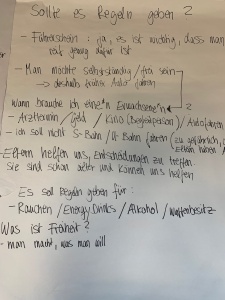 Sollte es Regeln geben?
- Führerschein: ja, es ist wichtig, dass man
reif genug dafür ist
- Man möchte selbstständig / frei sein
→ deshalb früher Auto fahren
Wann brauche ich eine*n Erwachsene*n? 2
- Arzttermin / Geld / Kino (Begleitperson) / Autofahren
- ich soll nicht S-Bahn / U-Bahn fahren (zu gefährlich,
Eltern haben
- Eltern helfen uns, Entscheidungen zu treffen
Sie sind schon älter und können uns helfen
Es soll Regeln geben für:
- Rauchen / Energy Drinks / Alkohol / Waffenbesitz
Was ist Freiheit?
- man macht, was man will